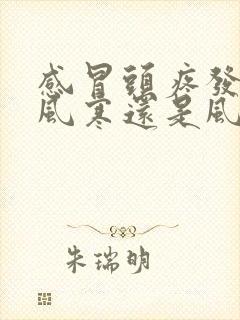 感冒頭疼發
風寒還是風
朱瑞明